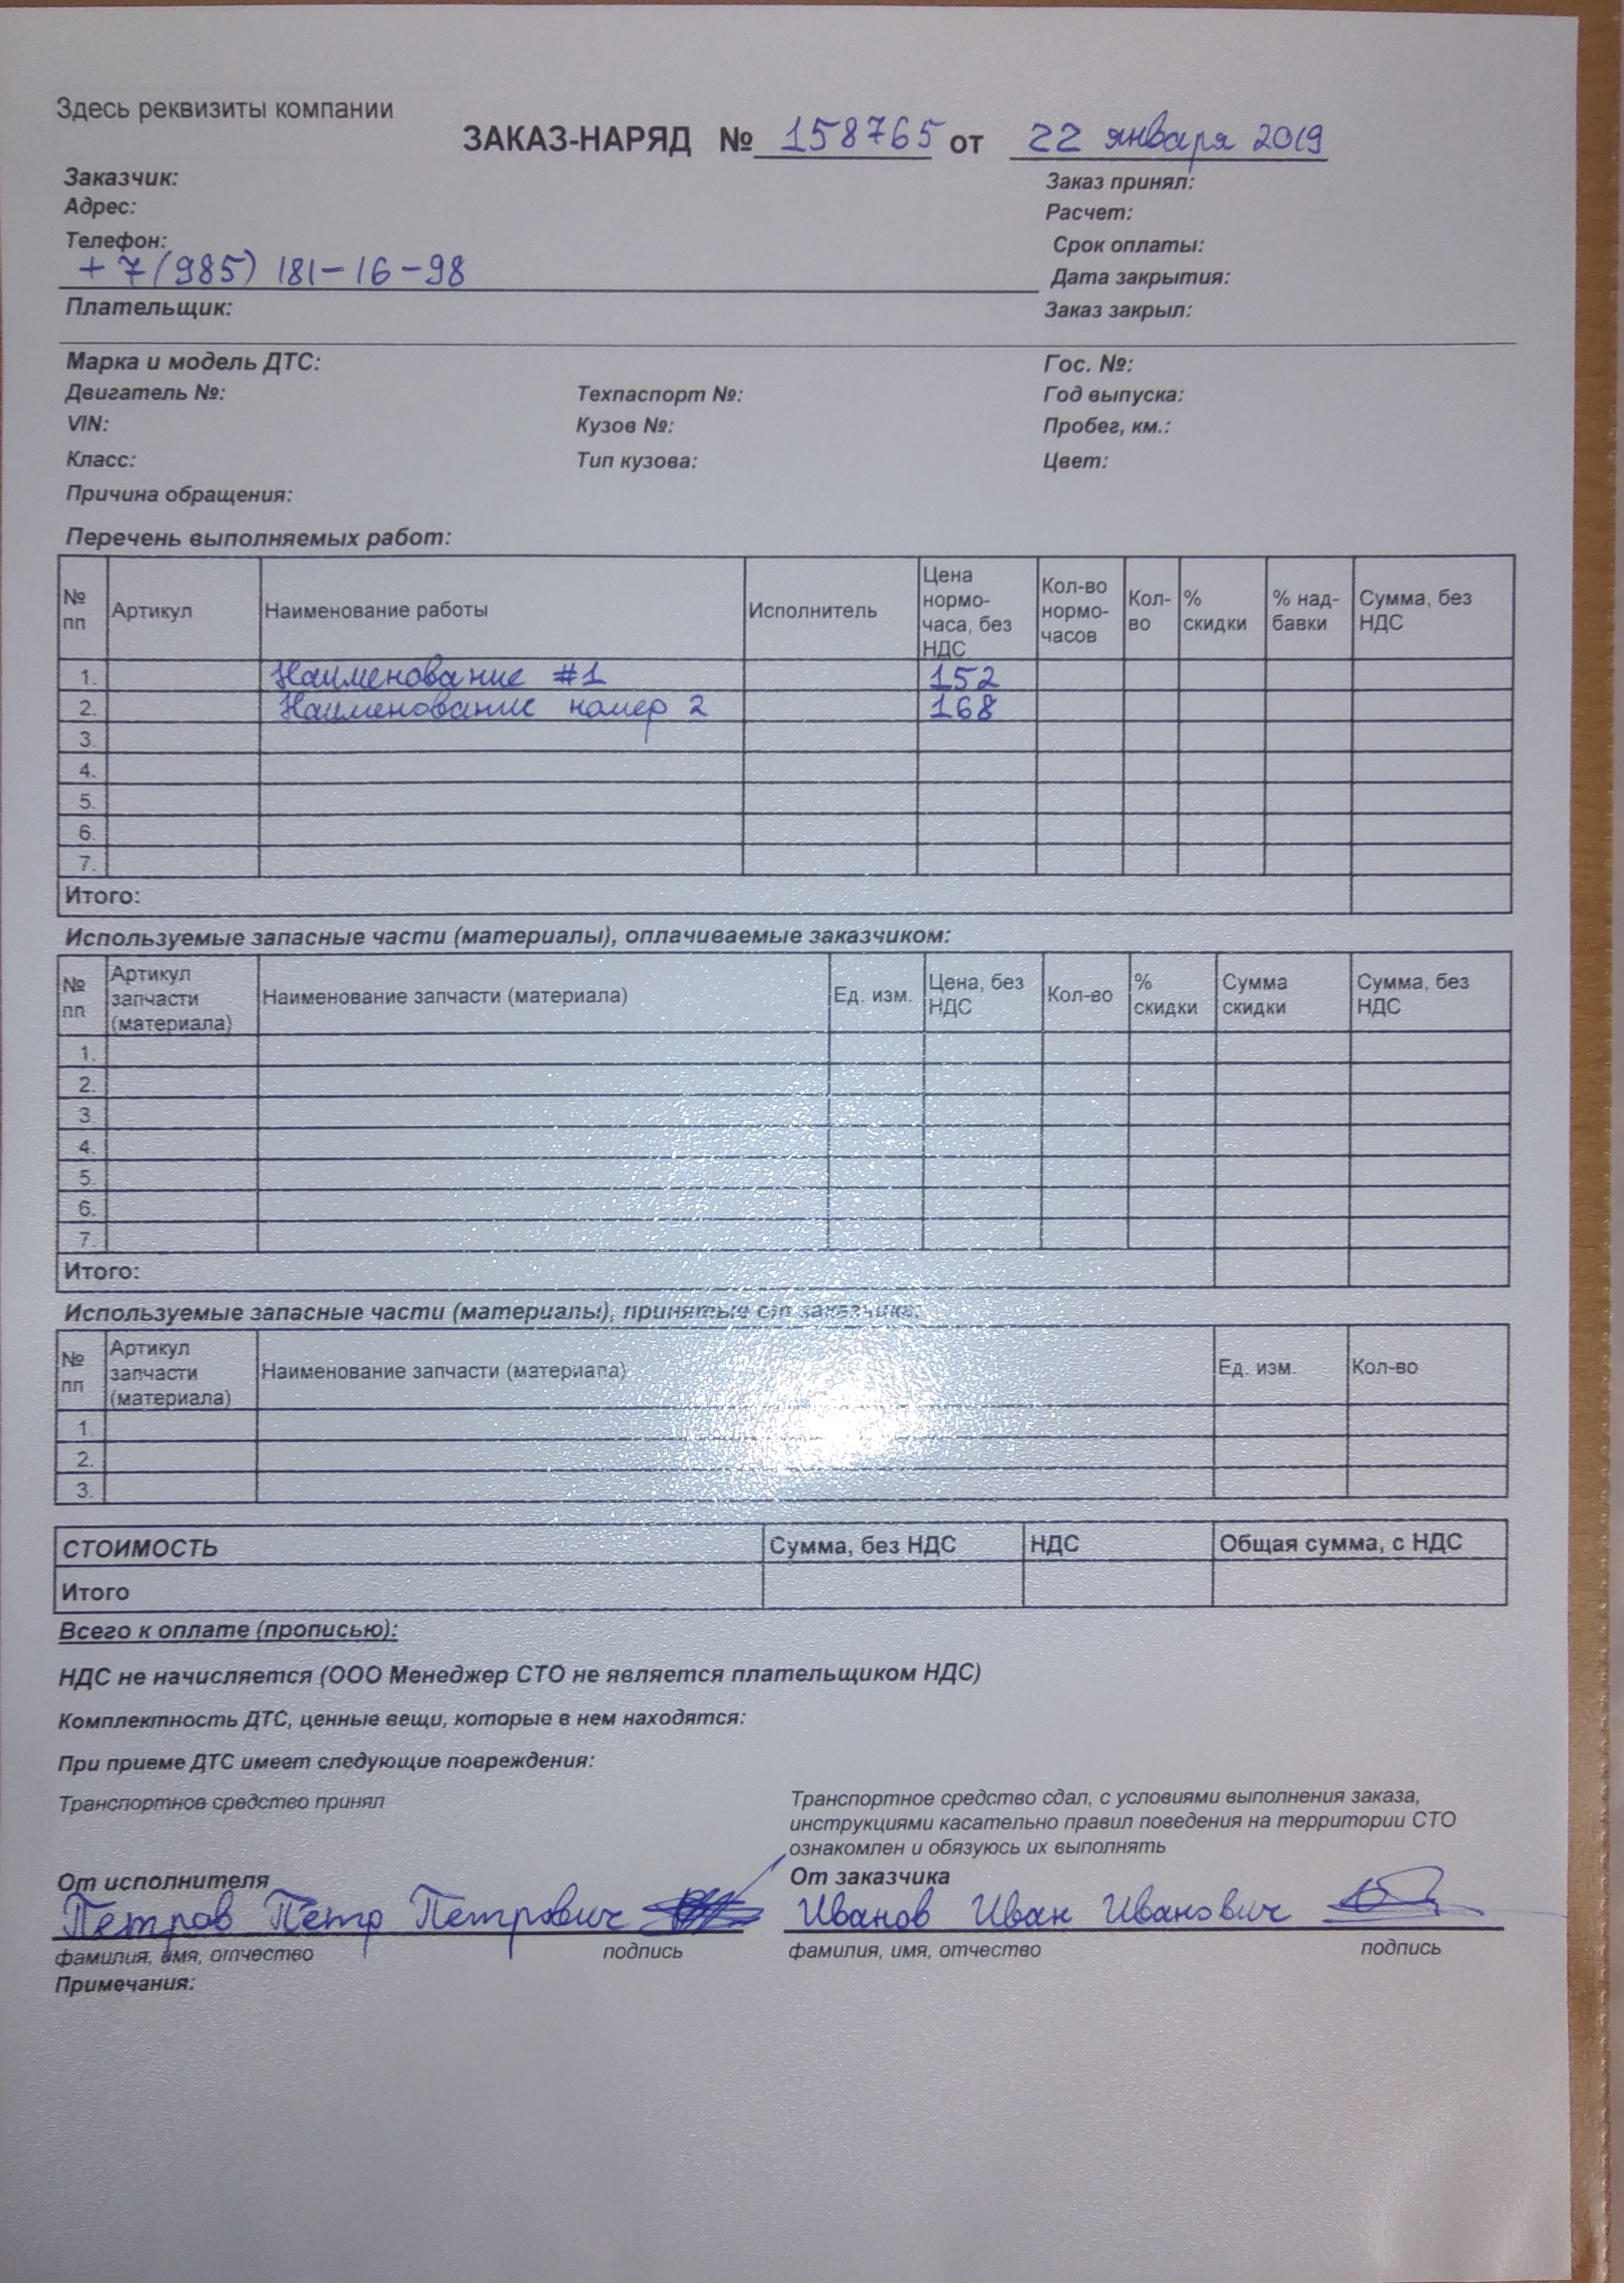 Здесь реквизиты компании
ЗАКАЗ-НАРЯД № 158765 от 22 января 2019
Заказчик: Заказ принял:
Адрес: Расчет:
Телефон: Срок оплаты:
+7(985) 181-16-98 Дата закрытия:
Плательщик: Заказ закрыл:
Марка и модель ДТС: Гос. №:
Двигатель №: Техпаспорт №: Год выпуска:
VIN: Кузов №: Пробег, км.:
Класс: Тип кузова: Цвет:
Причина обращения:
Перечень выполняемых работ:
№ пп Артикул Наименование работы Исполнитель Цена нормо-часа, без НДС Кол-во нормо-часов Кол-во % скидки % над-бавки Сумма, без НДС
1. Наименование #1 152
2. Наименование номер 2 168
3.
4.
5.
6.
7.
Итого:
Используемые запасные части (материалы), оплачиваемые заказчиком:
№ пп Артикул запчасти (материала) Наименование запчасти (материала) Ед. изм. Цена, без НДС Кол-во % скидки Сумма скидки Сумма, без НДС
1.
2.
3.
4.
5.
6.
7.
Итого:
Используемые запасные части (материалы), принятые от заказчика:
№ пп Артикул запчасти (материала) Наименование запчасти (материала) Ед. изм. Кол-во
1.
2.
3.
СТОИМОСТЬ Сумма, без НДС НДС Общая сумма, с НДС
Итого
Всего к оплате (прописью):
НДС не начисляется (ООО Менеджер СТО не является плательщиком НДС)
Комплектность ДТС, ценные вещи, которые в нем находятся:
При приеме ДТС имеет следующие повреждения:
Транспортное средство принял
Транспортное средство сдал, с условиями выполнения заказа,
инструкциями касательно правил поведения на территории СТО
ознакомлен и обязуюсь их выполнять
От исполнителя От заказчика
Петров Петр Петрович Иванов Иван Иванович
фамилия, имя, отчество подпись фамилия, имя, отчество подпись
Примечания: